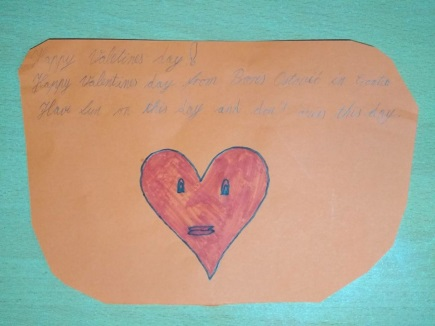 Happy Valetines day!
Happy Valentines day from
Have fun on this day and don't miss this day